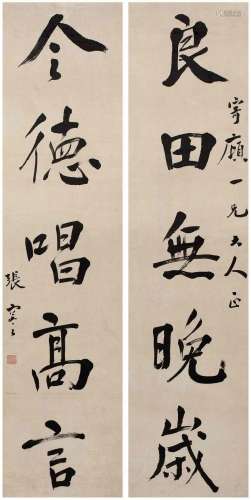 良田無晚歲
寄廎一兄大人正
令德唱高言
張